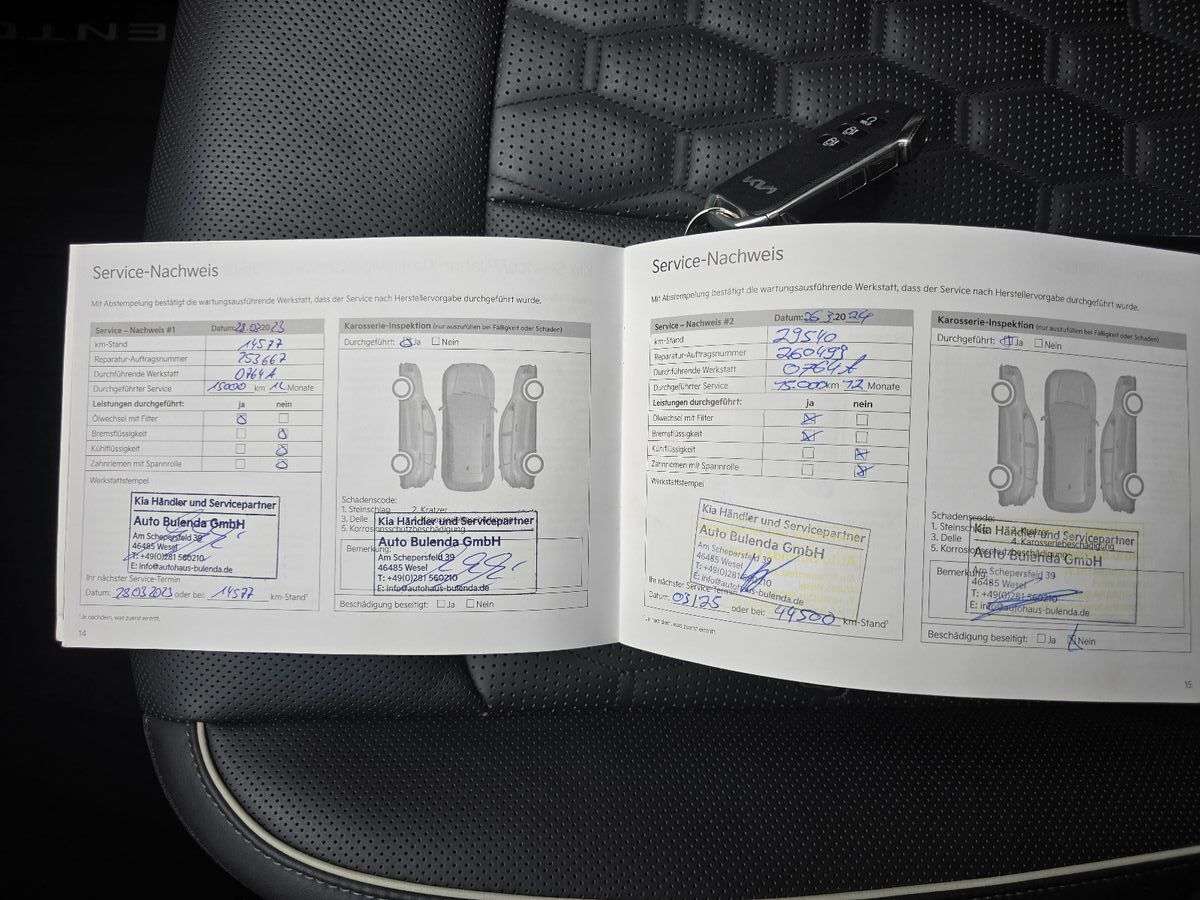 Service-Nachweis
Mit Abstempelung bestätigt die wartungsausführende Werkstatt, dass der Service nach Herstellervorgabe durchgeführt wurde.
Service – Nachweis #1 Datum: 2023
km-Stand 14577
Reparatur-Auftragsnummer 253667
Durchführende Werkstatt 0764A
Durchgeführter Service 15000 km 12 Monate
Leistungen durchgeführt: ja nein
Ölwechsel mit Filter
Bremsflüssigkeit
Kühlflüssigkeit
Zahnriemen mit Spannrolle
Werkstattstempel
Kia Händler und Servicepartner
Auto Bulenda GmbH
Am Schepersfeld 39
46485 Wesel
T: +49(0)281 560210
E: info@autohaus-bulenda.de
Ihr nächster Service-Termin
Datum: 28.03.2023 oder bei: 14577 km-Stand¹
¹ Je nachdem, was zuerst eintritt.
14
Karosserie-Inspektion (nur auszufüllen bei Fälligkeit oder Schaden)
Durchgeführt: Ja Nein
Schadenscode:
1. Steinschlag 2. Kratzer
3. Delle
5. Korrosionsschutzbeschädigung
Bemerkung:
Kia Händler und Servicepartner
Auto Bulenda GmbH
Am Schepersfeld 39
46485 Wesel
T: +49(0)281 560210
E: info@autohaus-bulenda.de
Beschädigung beseitigt: Ja Nein
Service-Nachweis
Mit Abstempelung bestätigt die wartungsausführende Werkstatt, dass der Service nach Herstellervorgabe durchgeführt wurde.
Service – Nachweis #2 Datum: 26.3.2024
km-Stand 29540
Reparatur-Auftragsnummer 260499
Durchführende Werkstatt 0764A
Durchgeführter Service 15.000 km 12 Monate
Leistungen durchgeführt: ja nein
Ölwechsel mit Filter
Bremsflüssigkeit
Kühlflüssigkeit
Zahnriemen mit Spannrolle
Werkstattstempel
Kia Händler und Servicepartner
Auto Bulenda GmbH
Am Schepersfeld 39
46485 Wesel
T: +49(0)281 560210
E: info@autohaus-bulenda.de
Ihr nächster Service-Termin
Datum: 03/25 oder bei: 44500 km-Stand¹
Karosserie-Inspektion (nur auszufüllen bei Fälligkeit oder Schaden)
Durchgeführt: Ja Nein
Schadenscode:
1. Steinschlag 2. Kratzer
3. Delle 4. Karosseriebeschädigung
5. Korrosionsschutzbeschädigung
Bemerkung:
Kia Händler und Servicepartner
Auto Bulenda GmbH
Am Schepersfeld 39
46485 Wesel
T: +49(0)281 560210
E: info@autohaus-bulenda.de
Beschädigung beseitigt: Ja Nein
15